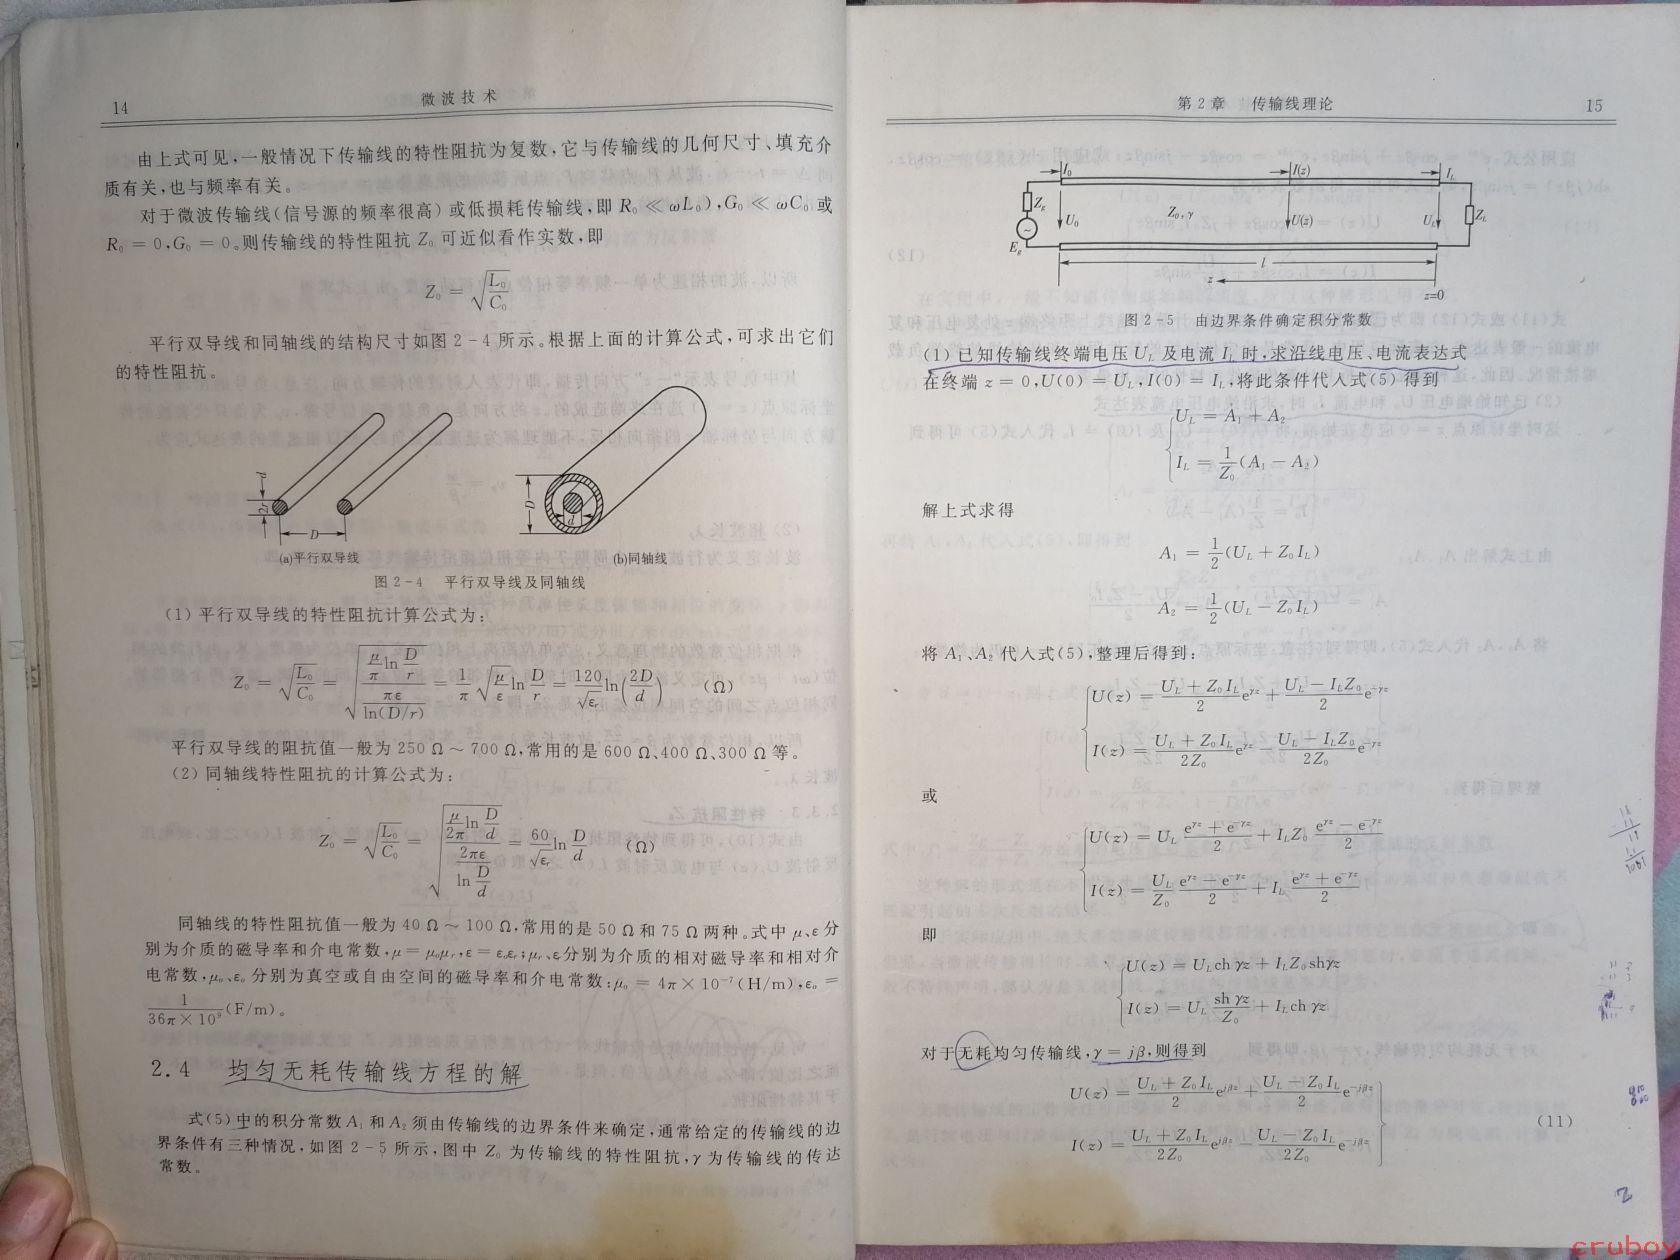 14
微波技术
由上式可见,一般情况下传输线的特性阻抗为复数,它与传输线的几何尺寸、填充介
质有关,也与频率有关。
对于微波传输线(信号源的频率很高)或低损耗传输线,即 R₀ ≪ ωL₀),G₀ ≪ ωC₀ 或
R₀ = 0,G₀ = 0。则传输线的特性阻抗 Z₀ 可近似看作实数,即
Z₀ = √(L₀/C₀)
平行双导线和同轴线的结构尺寸如图 2-4 所示。根据上面的计算公式,可求出它们
的特性阻抗。
d
2r
D
D
d
(a)平行双导线
(b)同轴线
图 2-4 平行双导线及同轴线
(1) 平行双导线的特性阻抗计算公式为:
Z₀ = √(L₀/C₀) = √((μ/π ln D/r)/(πε/ln(D/r))) = 1/π √(μ/ε) ln D/r = 120/√εᵣ ln(2D/d) (Ω)
平行双导线的阻抗值一般为 250 Ω ~ 700 Ω,常用的是 600 Ω、400 Ω、300 Ω 等。
(2) 同轴线特性阻抗的计算公式为:
Z₀ = √(L₀/C₀) = √((μ/2π ln D/d)/(2πε/ln D/d)) = 60/√εᵣ ln D/d (Ω)
同轴线的特性阻抗值一般为 40 Ω ~ 100 Ω,常用的是 50 Ω 和 75 Ω 两种。式中 μ、ε 分
别为介质的磁导率和介电常数,μ = μ₀μᵣ,ε = ε₀εᵣ;μᵣ、εᵣ分别为介质的相对磁导率和相对介
电常数,μ₀、ε₀ 分别为真空或自由空间的磁导率和介电常数:μ₀ = 4π × 10⁻⁷(H/m),ε₀ =
1/(36π × 10⁹)(F/m)。
2.4 均匀无耗传输线方程的解
式(5)中的积分常数 A₁ 和 A₂ 须由传输线的边界条件来确定,通常给定的传输线的边
界条件有三种情况,如图 2-5 所示,图中 Z₀ 为传输线的特性阻抗,γ 为传输线的传达
常数。
第 2 章 传输线理论
15
I₀ I(z) I_L
Z_g U₀ Z₀,γ U(z) U_L Z_L
E_g
l
z
z=0
图 2-5 由边界条件确定积分常数
(1) 已知传输线终端电压 U_L 及电流 I_L 时,求沿线电压、电流表达式
在终端 z = 0,U(0) = U_L,I(0) = I_L,将此条件代人式(5)得到
U_L = A₁ + A₂
I_L = 1/Z₀ (A₁ − A₂)
解上式求得
A₁ = 1/2 (U_L + Z₀I_L)
A₂ = 1/2 (U_L − Z₀I_L)
将 A₁、A₂ 代人式(5),整理后得到:
U(z) = (U_L + Z₀I_L)/2 e^γz + (U_L − I_LZ₀)/2 e^−γz
I(z) = (U_L + Z₀I_L)/2Z₀ e^γz − (U_L − I_LZ₀)/2Z₀ e^−γz
或
U(z) = U_L (e^γz + e^−γz)/2 + I_LZ₀ (e^γz − e^−γz)/2
I(z) = U_L/Z₀ (e^γz − e^−γz)/2 + I_L (e^γz + e^−γz)/2
即
U(z) = U_L ch γz + I_LZ₀ shγz
I(z) = U_L sh γz/Z₀ + I_L ch γz
对于无耗均匀传输线,γ = jβ,则得到
U(z) = (U_L + Z₀I_L)/2 e^jβz + (U_L − Z₀I_L)/2 e^−jβz
(11)
I(z) = (U_L + Z₀I_L)/2Z₀ e^jβz − (U_L − Z₀I_L)/2Z₀ e^−jβz
cruboy